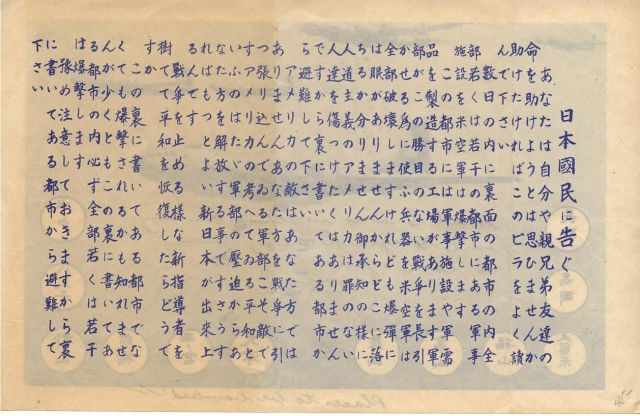 日本國民に告ぐ
あなたは自分や親兄弟友達の
命を助けようとは思ひませんか
助けたければこのビラをよく讀
んで下さい
数日の内に裏面の都市の内全
部若くは若干の都市にある軍事
施設を米空軍は爆撃します
この都市には軍事施設や軍需
品を製造する工場があります軍
部がこの勝目のない戦争を長引
かせる為に使ふ兵器を米空軍は
全部破壊しますけれども爆彈
には眼がありませんからどこに落
ちるか分りません御承知の様に
人道主義のアメリカは罪のない
人達を傷つけたくはありません
ですから裏に書いてある都市か
ら避難して下さい
アメリカの敵はあなた方では
ありませんあなた方を戦争に引
つ張り込んでゐる軍部こそ敵で
すアメリカの考へてゐる平和と
いふのはたゞ軍部の壓迫からあ
なた方を解放する事ですさうす
ればもつとよい新日本が出來上
るんです
戦争を止める様な新指導者を
樹てて平和を恢復したらどうで
すか
この裏に書いてある都市でな
くても爆撃されるかも知れませ
んが少くともこの裏に書いてあ
る都市の内必ず全部若くは若干
は爆撃します
豫め注意しておきますから裏
に書いてある都市から避難して
下さい